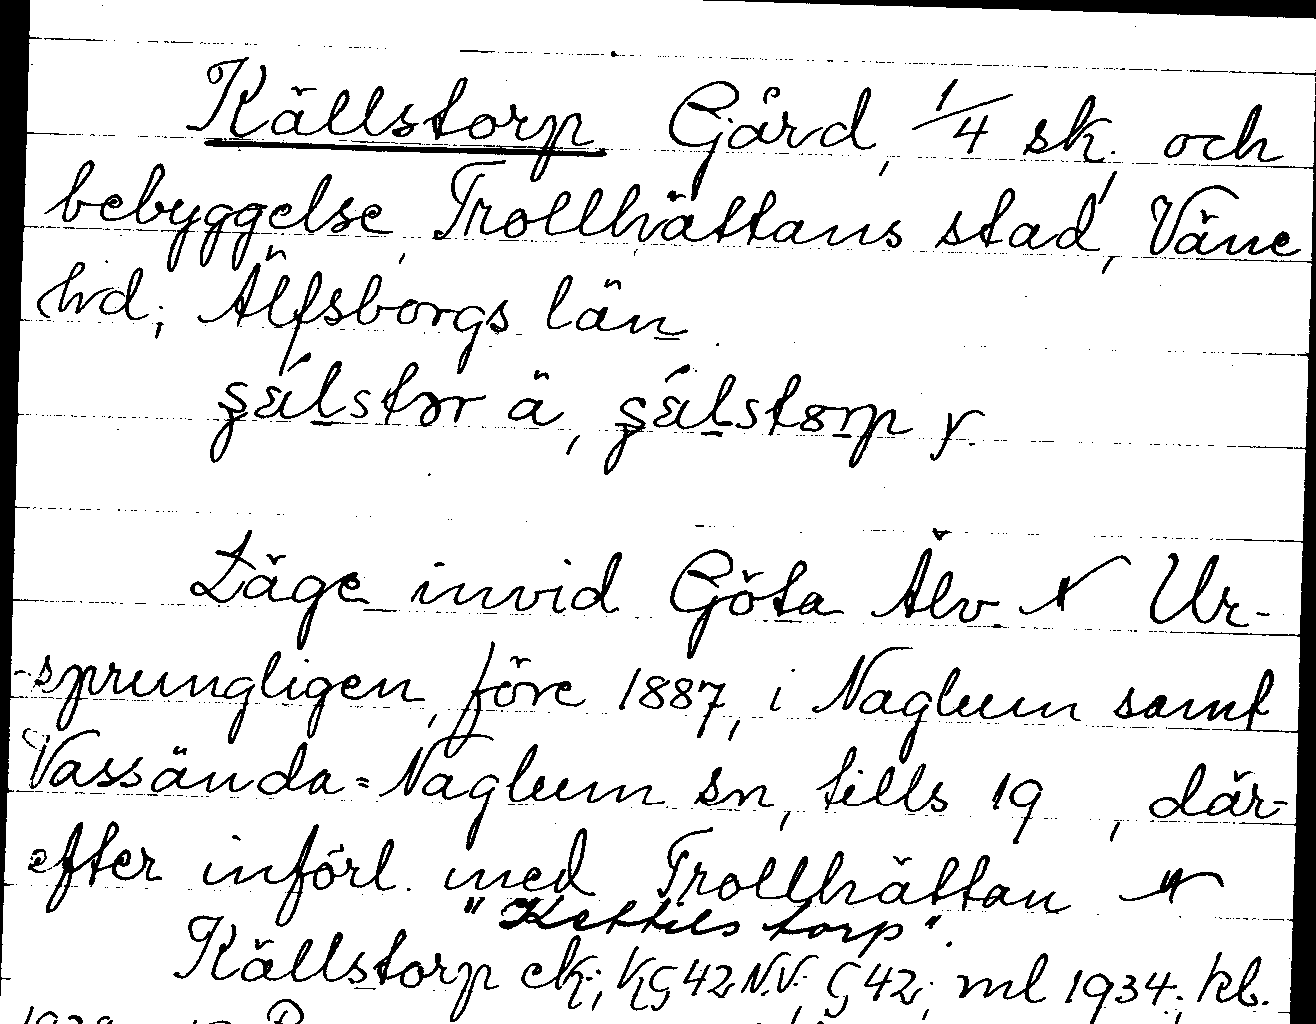 Källstorp Gård, 1/4 sk, och
bebyggelse, Trollhättans stad, Väne
hd, Älfsborgs län
ä, y.
Läge invid Göta Älv. Ur-
-sprungligen, före 1887, i Naglum samt
Vassända-Naglum sn, tills 19 , där-
efter införl. med Trollhättan
"Kettilstorp".
Källstorp ek; KG42N.V; G42; ml 1934; kb.